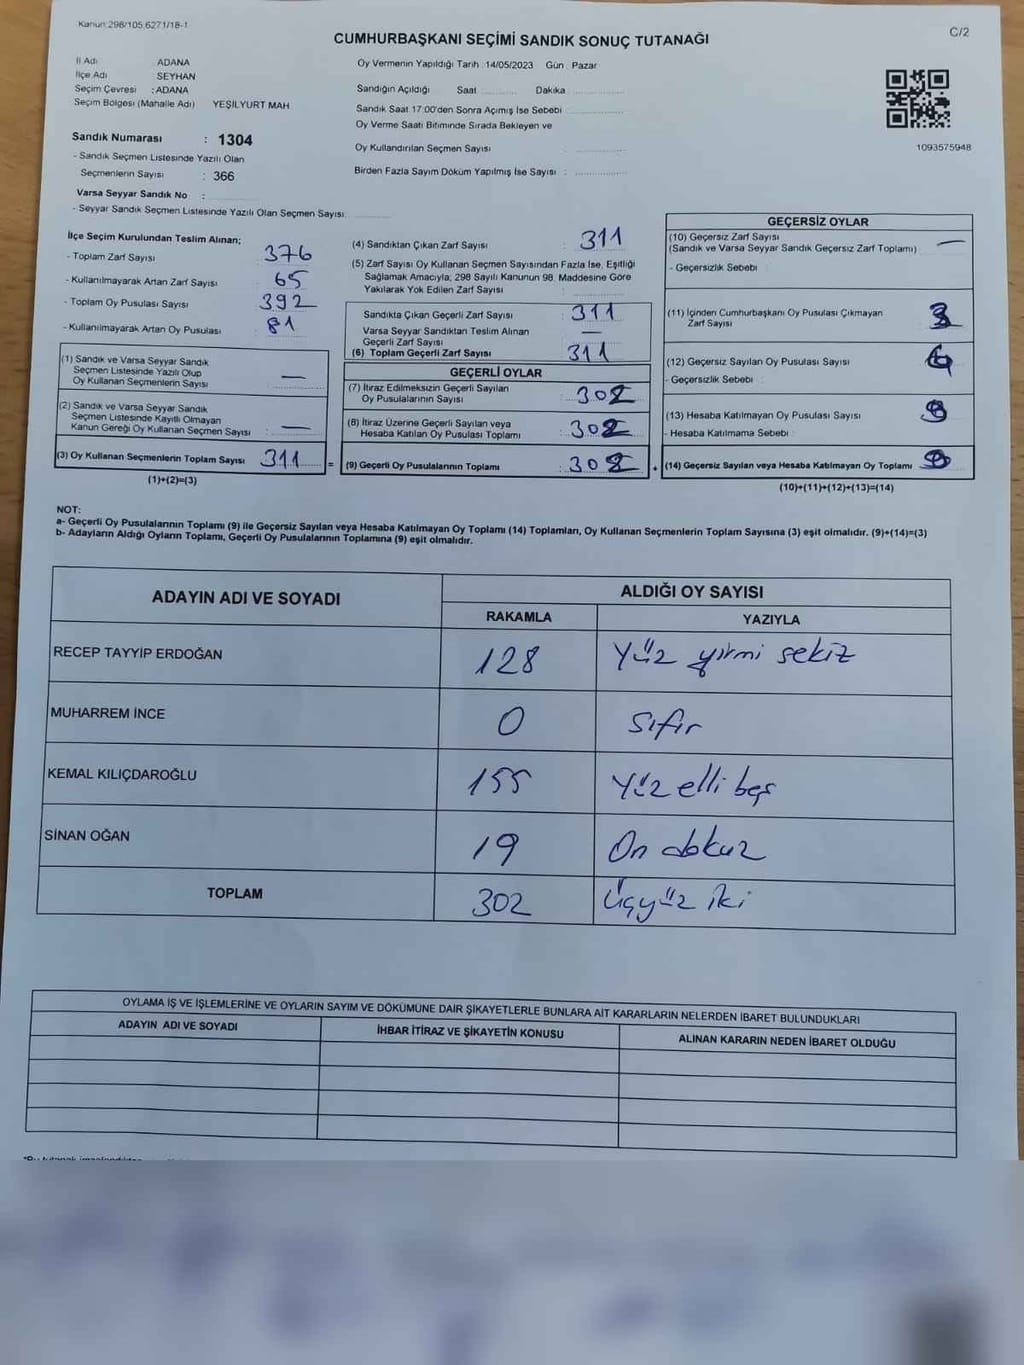 Kanun:298/105,6271/18-1
C/2
CUMHURBAŞKANI SEÇİMİ SANDIK SONUÇ TUTANAĞI
İl Adı ADANA
İlçe Adı SEYHAN
Seçim Çevresi : ADANA
Seçim Bölgesi (Mahalle Adı) YEŞİLYURT MAH
Sandık Numarası : 1304
- Sandık Seçmen Listesinde Yazılı Olan
Seçmenlerin Sayısı : 366
Varsa Seyyar Sandık No :
- Seyyar Sandık Seçmen Listesinde Yazılı Olan Seçmen Sayısı:
Oy Vermenin Yapıldığı Tarih : 14/05/2023 Gün : Pazar
Sandığın Açıldığı Saat Dakika
Sandık Saat 17:00'den Sonra Açımış İse Sebebi :
Oy Verme Saati Bitiminde Sırada Bekleyen ve
Oy Kullandırılan Seçmen Sayısı :
Birden Fazla Sayım Döküm Yapılmış İse Sayısı :
1093575948
İlçe Seçim Kurulundan Teslim Alınan;
- Toplam Zarf Sayısı : 376
- Kullanılmayarak Artan Zarf Sayısı : 65
- Toplam Oy Pusulası Sayısı : 392
- Kullanılmayarak Artan Oy Pusulası : 81
(1) Sandık ve Varsa Seyyar Sandık
Seçmen Listesinde Yazılı Olup
Oy Kullanan Seçmenlerin Sayısı : —
(2) Sandık ve Varsa Seyyar Sandık
Seçmen Listesinde Kayıtlı Olmayan
Kanun Gereği Oy Kullanan Seçmen Sayısı : —
(3) Oy Kullanan Seçmenlerin Toplam Sayısı 311
(1)+(2)=(3)
=
(4) Sandıktan Çıkan Zarf Sayısı : 311
(5) Zarf Sayısı Oy Kullanan Seçmen Sayısından Fazla İse, Eşitliği
Sağlamak Amacıyla; 298 Sayılı Kanunun 98. Maddesine Göre
Yakılarak Yok Edilen Zarf Sayısı :
Sandıkta Çıkan Geçerli Zarf Sayısı : 311
Varsa Seyyar Sandıktan Teslim Alınan
Geçerli Zarf Sayısı : —
(6) Toplam Geçerli Zarf Sayısı : 311
GEÇERLİ OYLAR
(7) İtiraz Edilmeksizin Geçerli Sayılan
Oy Pusulalarının Sayısı : 302
(8) İtiraz Üzerine Geçerli Sayılan veya
Hesaba Katılan Oy Pusulası Toplamı : 302
(9) Geçerli Oy Pusulalarının Toplamı : 302
+
GEÇERSİZ OYLAR
(10) Geçersiz Zarf Sayısı
(Sandık ve Varsa Seyyar Sandık Geçersiz Zarf Toplamı) : —
- Geçersizlik Sebebi :
(11) İçinden Cumhurbaşkanı Oy Pusulası Çıkmayan
Zarf Sayısı :
(12) Geçersiz Sayılan Oy Pusulası Sayısı :
- Geçersizlik Sebebi :
(13) Hesaba Katılmayan Oy Pusulası Sayısı :
- Hesaba Katılmama Sebebi :
(14) Geçersiz Sayılan veya Hesaba Katılmayan Oy Toplamı :
(10)+(11)+(12)+(13)=(14)
NOT:
a- Geçerli Oy Pusulalarının Toplamı (9) ile Geçersiz Sayılan veya Hesaba Katılmayan Oy Toplamı (14) Toplamları, Oy Kullanan Seçmenlerin Toplam Sayısına (3) eşit olmalıdır. (9)+(14)=(3)
b- Adayların Aldığı Oyların Toplamı, Geçerli Oy Pusulalarının Toplamına (9) eşit olmalıdır.
ADAYIN ADI VE SOYADI ALDIĞI OY SAYISI
RAKAMLA YAZIYLA
RECEP TAYYİP ERDOĞAN 128 Yüz yirmi sekiz
MUHARREM İNCE 0 Sıfır
KEMAL KILIÇDAROĞLU 155 Yüz elli beş
SİNAN OĞAN 19 On dokuz
TOPLAM 302 Üçyüz iki
OYLAMA İŞ VE İŞLEMLERİNE VE OYLARIN SAYIM VE DÖKÜMÜNE DAİR ŞİKAYETLERLE BUNLARA AİT KARARLARIN NELERDEN İBARET BULUNDUKLARI
ADAYIN ADI VE SOYADI İHBAR İTİRAZ VE ŞİKAYETİN KONUSU ALINAN KARARIN NEDEN İBARET OLDUĞU